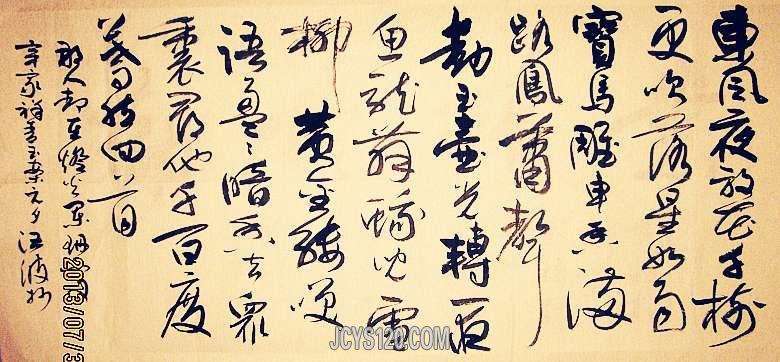 東風夜放花千樹
更吹落星如雨
寶馬雕車香滿
路鳳簫聲
動玉壺光轉一夜
魚龍舞蛾兒雪
柳黃金縷笑
語盈〻暗香去眾
裏尋他千百度
驀然回首
那人却在燈火闌珊
青玉案元夕 江波抄
2013/07/3
JCYS120.COM